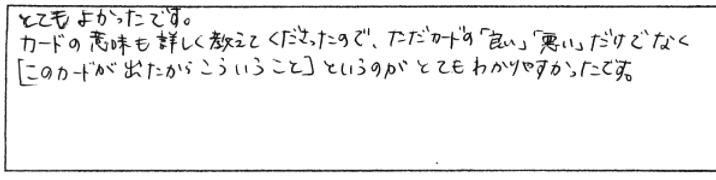 とてもよかったです。
カードの意味も詳しく教えてくださったので、ただカードの「良い」「悪い」だけでなく
[このカードが出たからこういうこと]というのがとてもわかりやすかったです。